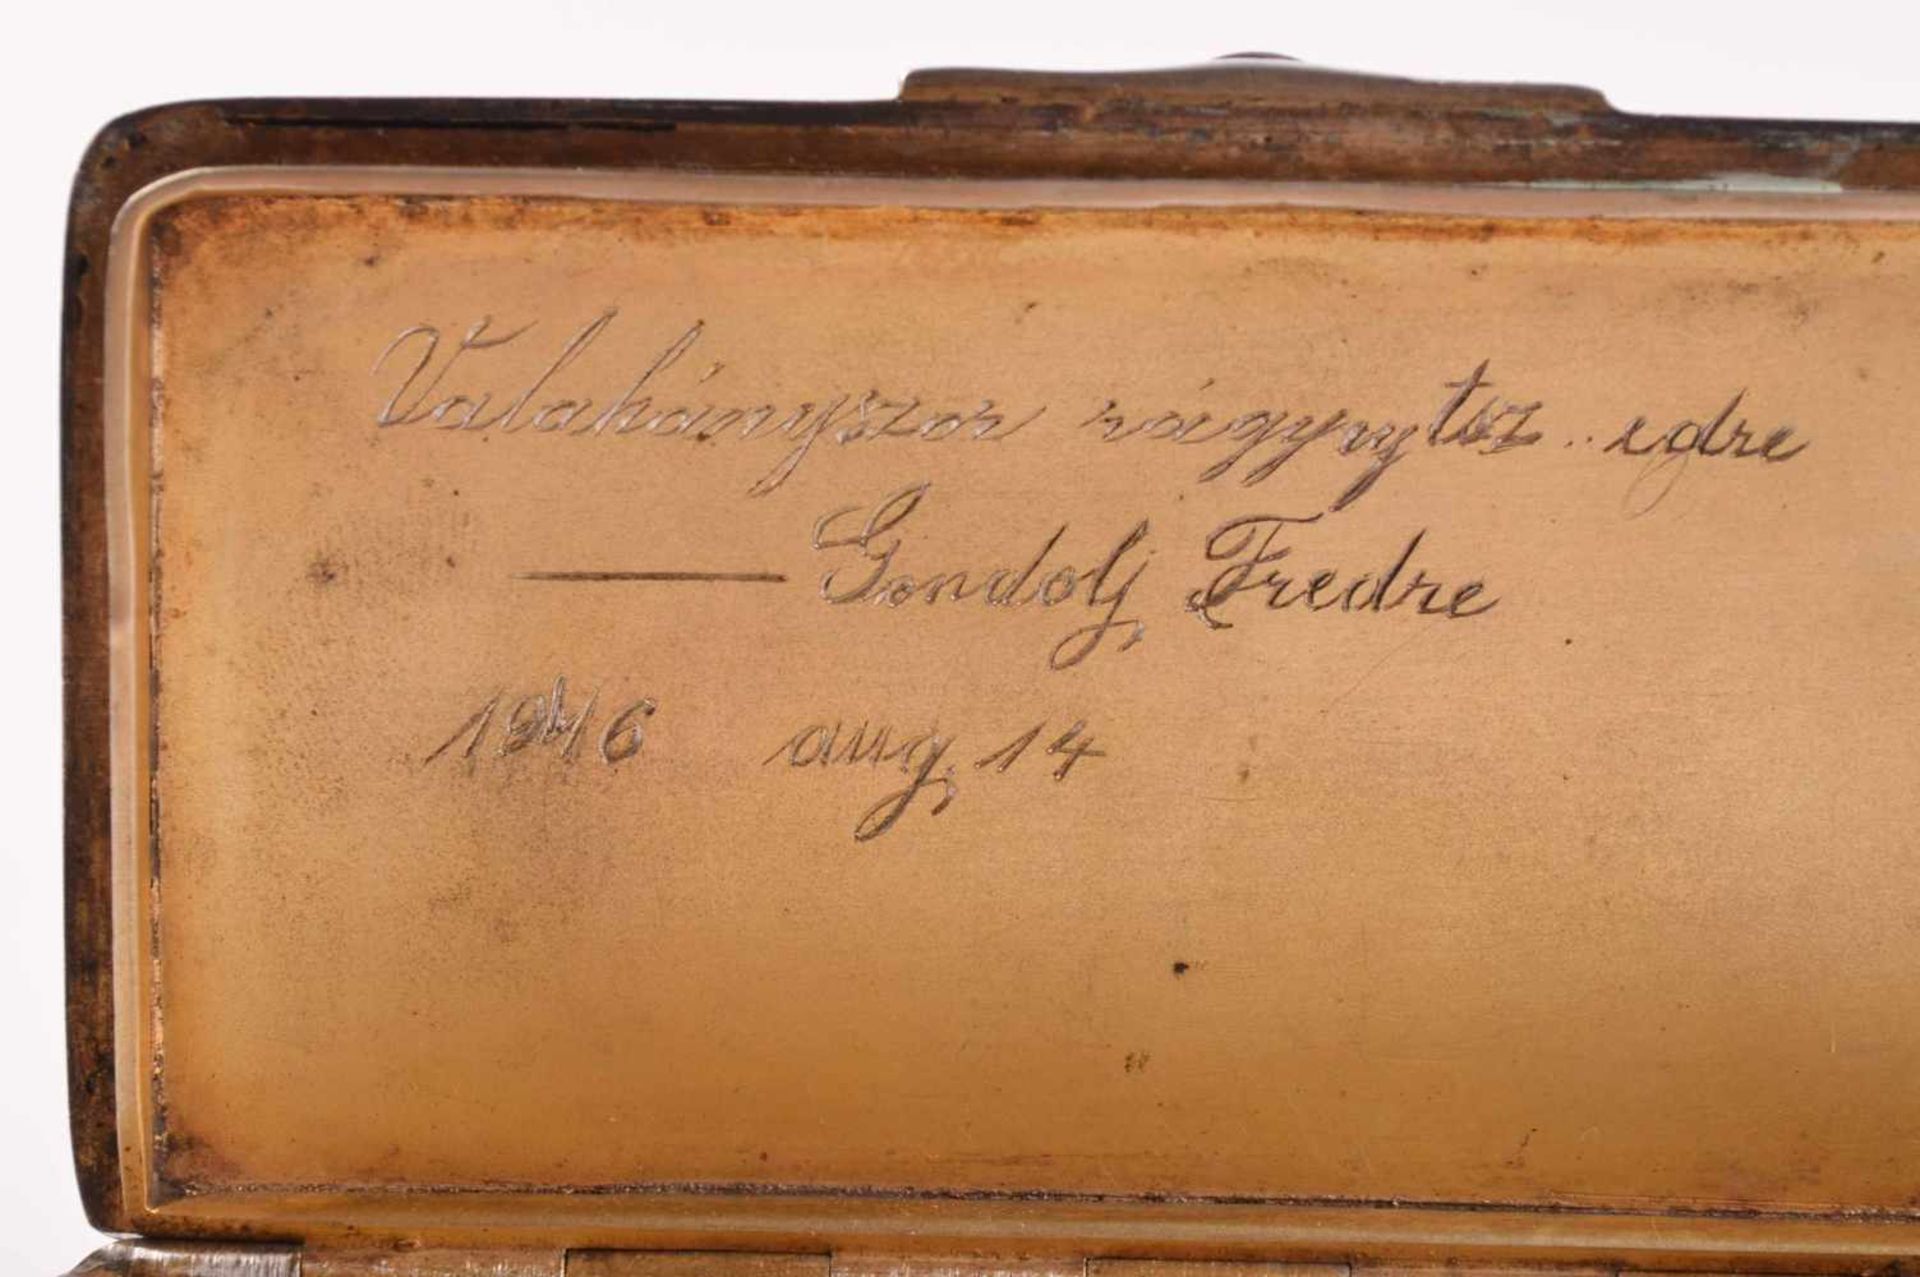 Valahányszor rágyujtsz .. egdre
— Gondolj Fredre
1946 aug, 14